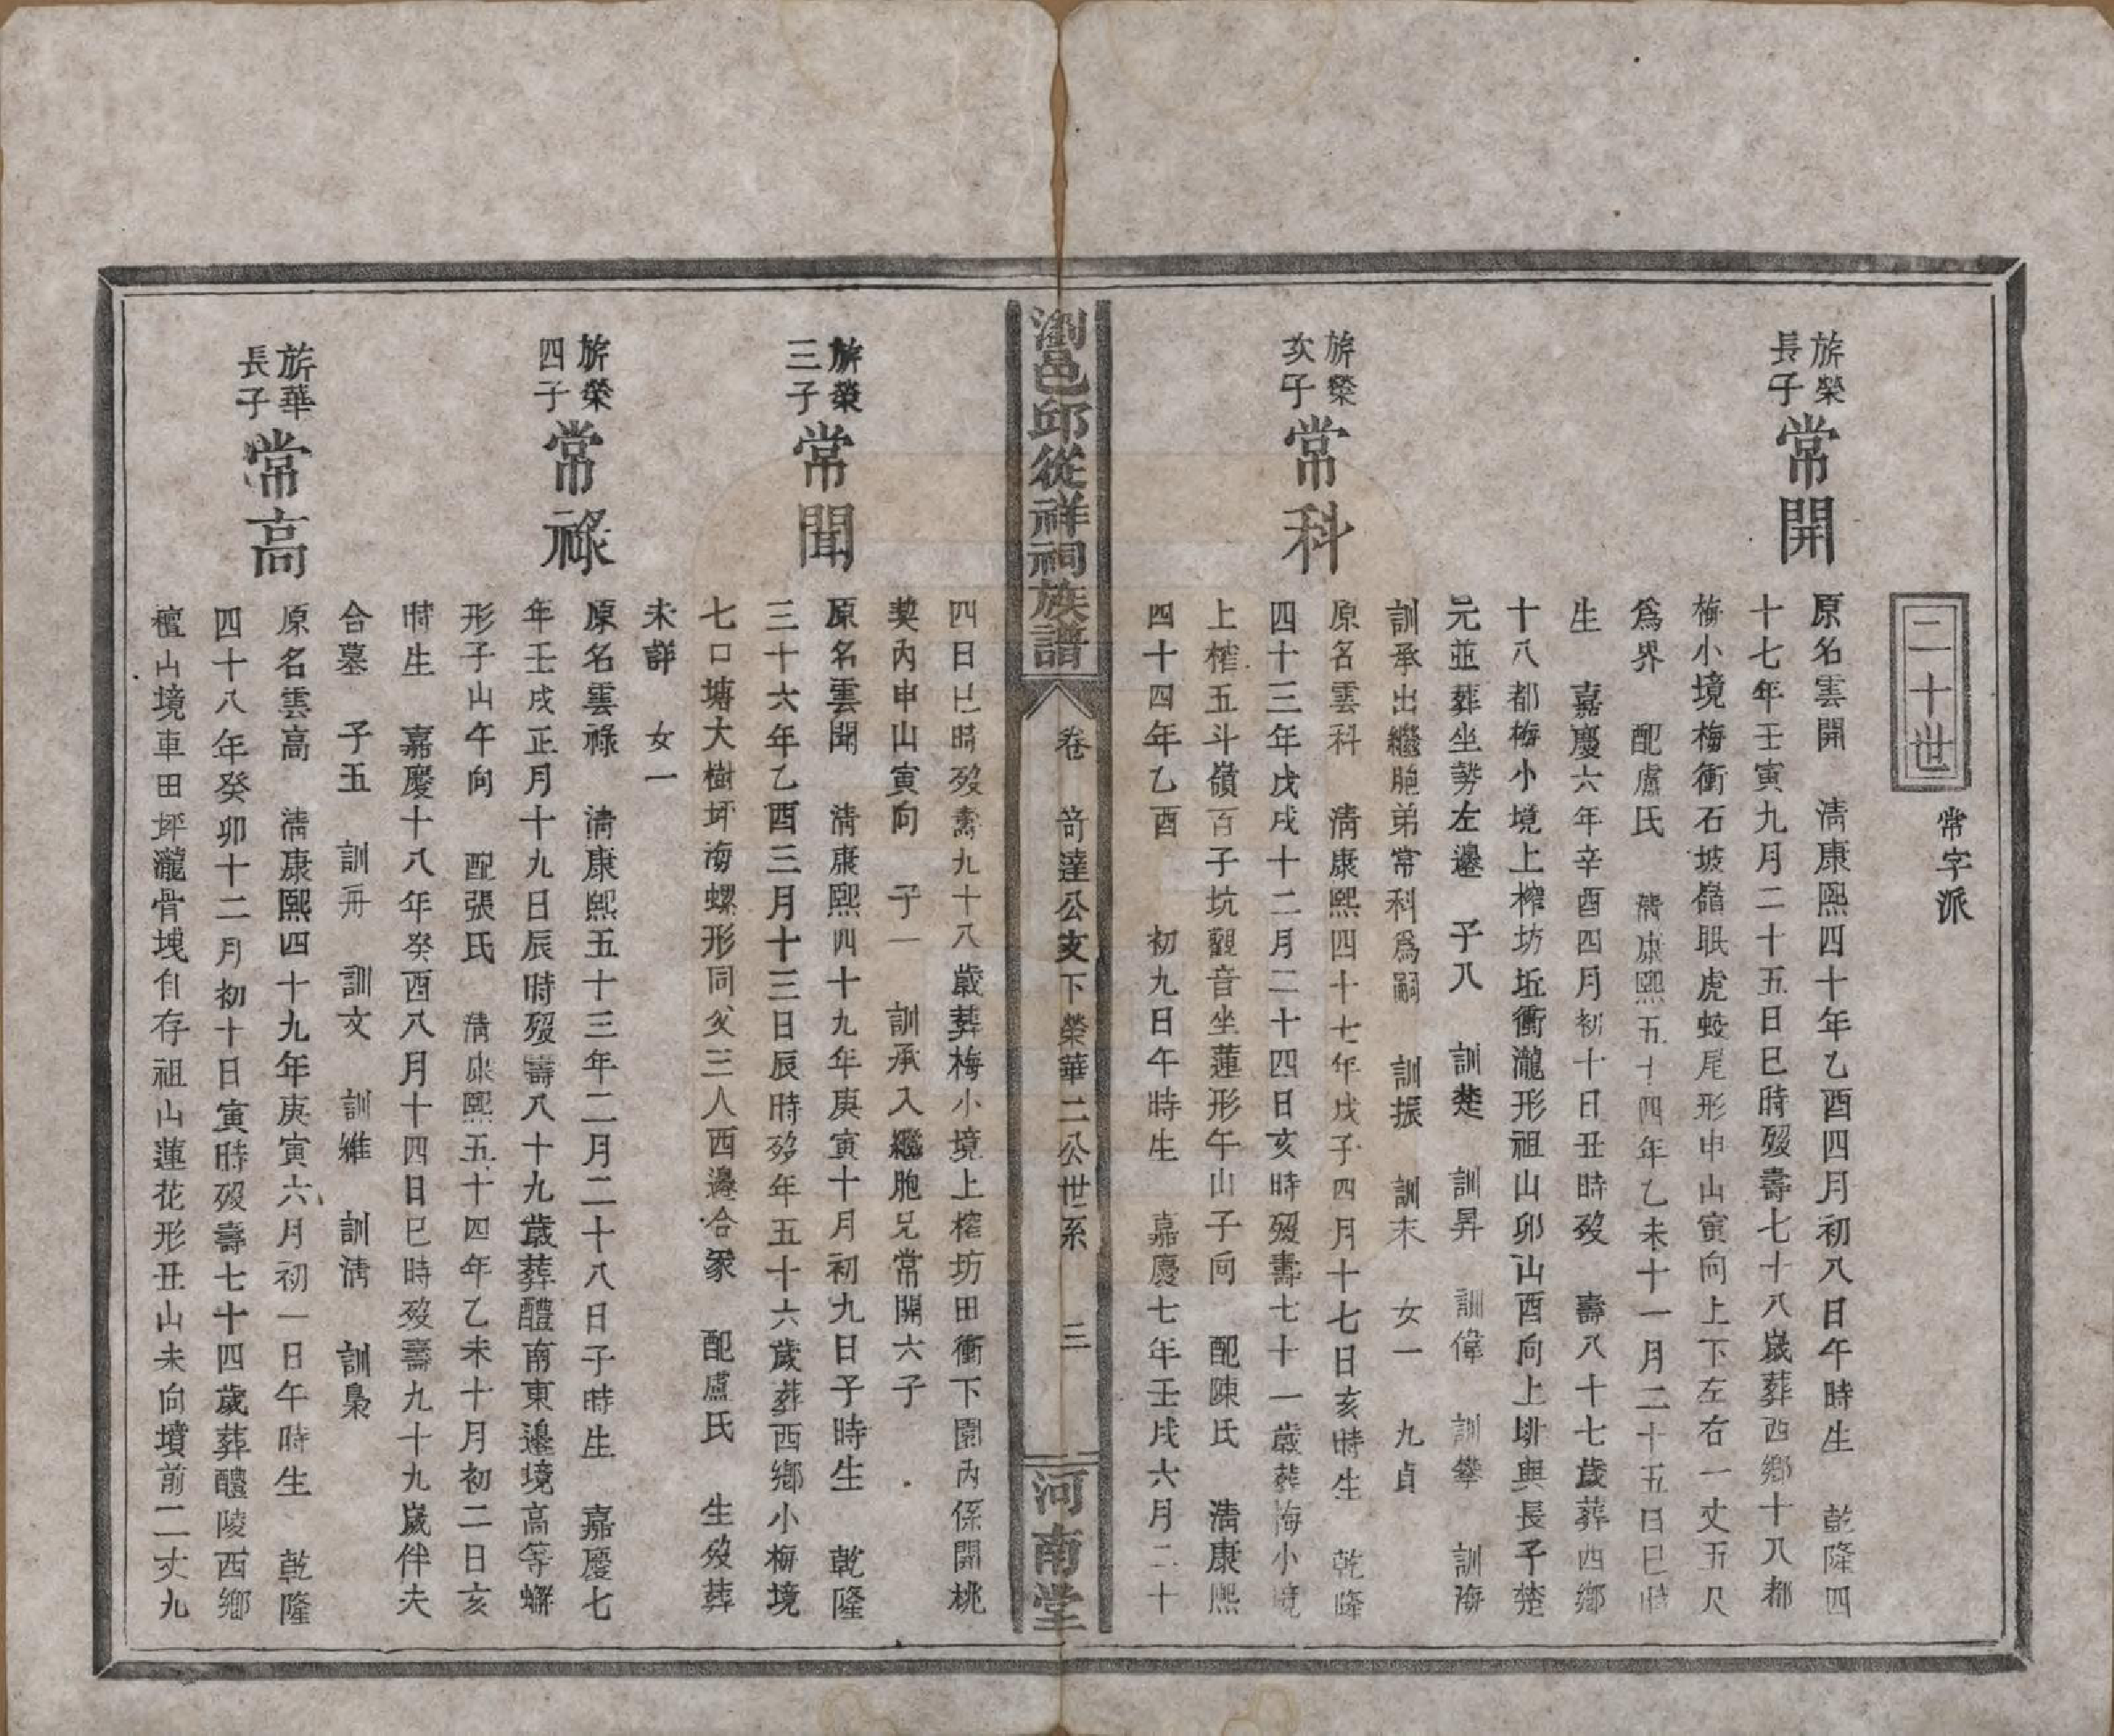 二十世
常字派
旂榮
長子
常開
原名雲開　清康熙四十年乙酉四月初八日午時生　乾隆四
十七年壬寅九月二十五日巳時歿壽七十八歲葬西鄉十八都
梅小境梅衝石坡嶺眠虎蛟尾形申山寅向上下左右一丈五尺
爲界　配盧氏　清康熙五十四年乙未十一月二十五日巳時
生　嘉慶六年辛酉四月初十日丑時歿　壽八十七歲葬西鄉
十八都梅小境上榨坊坵衝瀧形祖山卯山酉向上塅與長子楚
元並葬坐勢左邊　子八　訓楚　訓昇　訓偉　訓攀　訓海
訓承出繼胞弟常科爲嗣　訓振　訓末　女一　九貞
旂榮
次子
常科
原名雲科　清康熙四十七年戊子四月十七日亥時生　乾隆
四十三年戊戌十二月二十四日亥時歿壽七十一歲葬梅小境
上榨五斗嶺百子坑觀音坐蓮形午山子向　配陳氏　清康熙
四十四年乙酉　初九日午時生　嘉慶七年壬戌六月二十
瀏邑邱從祥祠族譜
卷　苛達公支下榮華二公世系　三
河南堂
四日巳時歿壽九十八歲葬梅小境上榨坊田衝下園內係開桃
契內申山寅向　子一　訓承入繼胞兄常開六子
旂榮
三子
常聞
原名雲聞　清康熙四十九年庚寅十月初九日子時生　乾隆
三十六年乙酉三月十三日辰時歿年五十六歲葬西鄉小梅境
七口塘大樹坪海螺形同父三人西邊合冢　配盧氏　生歿葬
未詳　女一
旂榮
四子
常祿
原名雲祿　清康熙五十三年二月二十八日子時生　嘉慶七
年壬戌正月十九日辰時歿壽八十九歲葬醴南東邊境高等蠏
形子山午向　配張氏　清康熙五十四年乙未十月初二日亥
時生　嘉慶十八年癸酉八月十四日巳時歿壽九十九歲伴夫
合墓　子五　訓冊　訓文　訓維　訓清　訓梟
旂華
長子
常高
原名雲高　清康熙四十九年庚寅六月初一日午時生　乾隆
四十八年癸卯十二月初十日寅時歿壽七十四歲葬醴陵西鄉
檀山境車田坪瀧骨塊自存祖山蓮花形丑山未向墳前二丈九